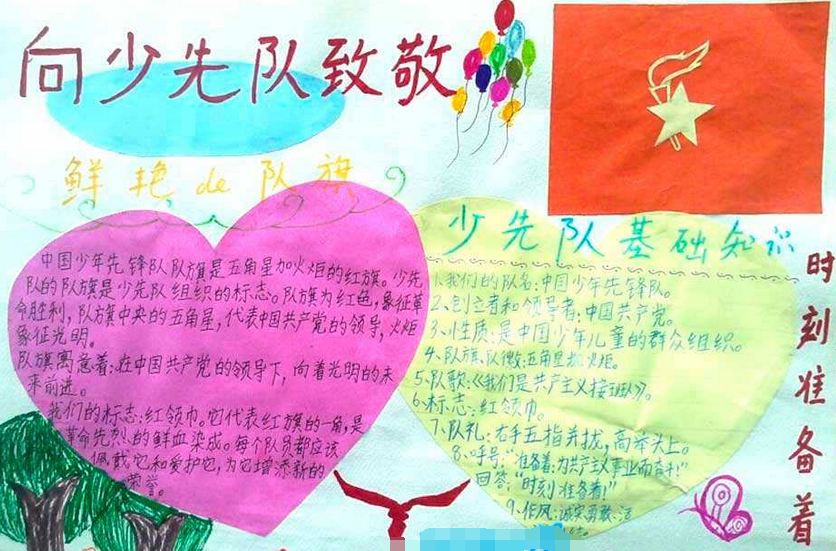 向少先队致敬
鲜艳de队旗
中国少年先锋队队旗是五角星加火炬的红旗。少先
队的队旗是少先队组织的标志。队旗为红色,象征革
命胜利,队旗中央的五角星,代表中国共产党的领导,火炬
象征光明。
队旗寓意着:在中国共产党的领导下,向着光明的未
来前进。
我们的标志:红领巾。它代表红旗的一角,是
革命先烈的鲜血染成。每个队员都应该
佩戴它和爱护它,为它增添新的
荣誉。
少先队基础知识
1、我们的队名:中国少年先锋队。
2、创立者和领导者:中国共产党。
3、性质:是中国少年儿童的群众组织。
4、队旗、队徽:五角星加火炬。
5、队歌:《我们是共产主义接班人》。
6、标志:红领巾。
7、队礼:右手五指并拢,高举头上。
8、呼号:"准备着:为共产主义事业而奋斗!"
回答:"时刻准备着!"
9、作风:诚实勇敢、活
时刻准备着